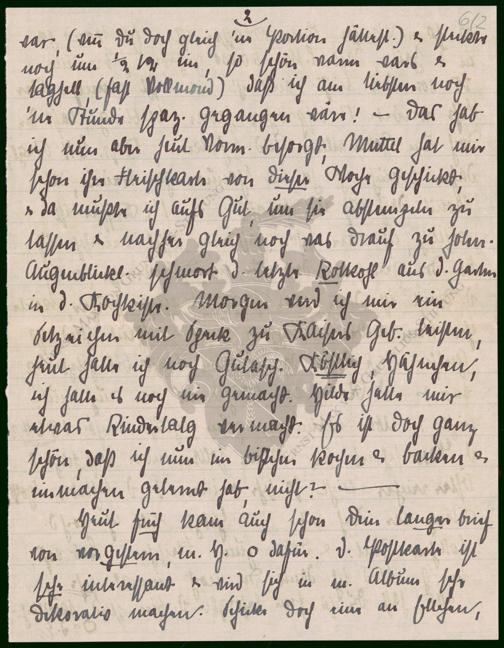 2
6/2
war, (wenn du doch gleich 'ne Portion hättest.) & steckte
noch um ½ 12 im, so schön warm wars &
taghell, (fast Vollmond) daß ich am liebsten noch
'ne Stunde spaz. gegangen wäre! — Das hab
ich nun aber heut Vorm. besorgt, Muttel hat mir
schon ihre Fleischkarte von dieser Woche geschickt,
& da mußte ich aufs Gut, um sie abstempeln zu
lassen & nachher gleich noch was drauf zu holen.
Augenblickl. schmort d. letzte Rotkohl aus d. Garten
in d. Kochkiste. Morgen werd ich mir ein
mit Speck zu Kaisers Geb. leisten,
heut hatte ich noch Gulasch. Köstlich, Hähnchen,
ich hatte es noch nie gemacht. Hilde hatte mir
etwas Rindertalg vermacht. Es ist doch ganz
schön, daß ich nun ein bißchen kochen & backen &
einmachen gelernt hab, nicht? —
Heut früh kam auch schon dein langer brief
von vorgestern, m. H. o dafür. d. Postkarte ist
sehr interessant & wird sich in m. Album sehr
dekorativ machen. Schicke doch eine an